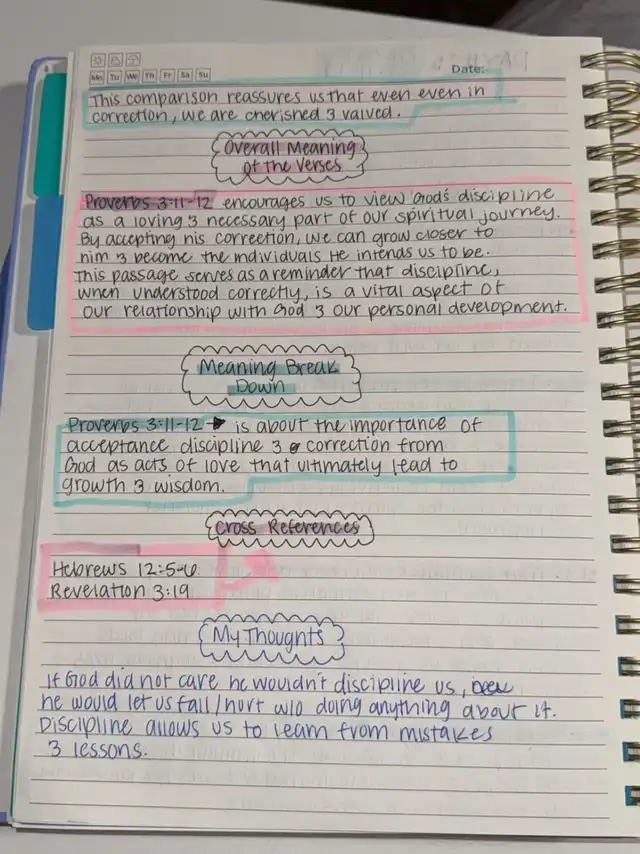 Mo Tu We Th Fr Sa Su
Date:
This comparison reassures us that even even in
correction, we are cherished & valued.
Overall Meaning
of the Verses
Proverbs 3:11-12 encourages us to view God's discipline
as a loving & necessary part of our spiritual journey.
By accepting his correction, we can grow closer to
him & become the individuals He intends us to be.
This passage serves as a reminder that discipline,
when understood correctly, is a vital aspect of
our relationship with God & our personal development.
Meaning Break
Down
Proverbs 3:11-12 → is about the importance of
acceptance discipline & correction from
God as acts of love that ultimately lead to
growth & wisdom.
Cross References
Hebrews 12:5-6
Revelation 3:19
My Thoughts
If God did not care he wouldn't discipline us,
he would let us fall/hurt w/o doing anything about it.
Discipline allows us to learn from mistakes
& lessons.